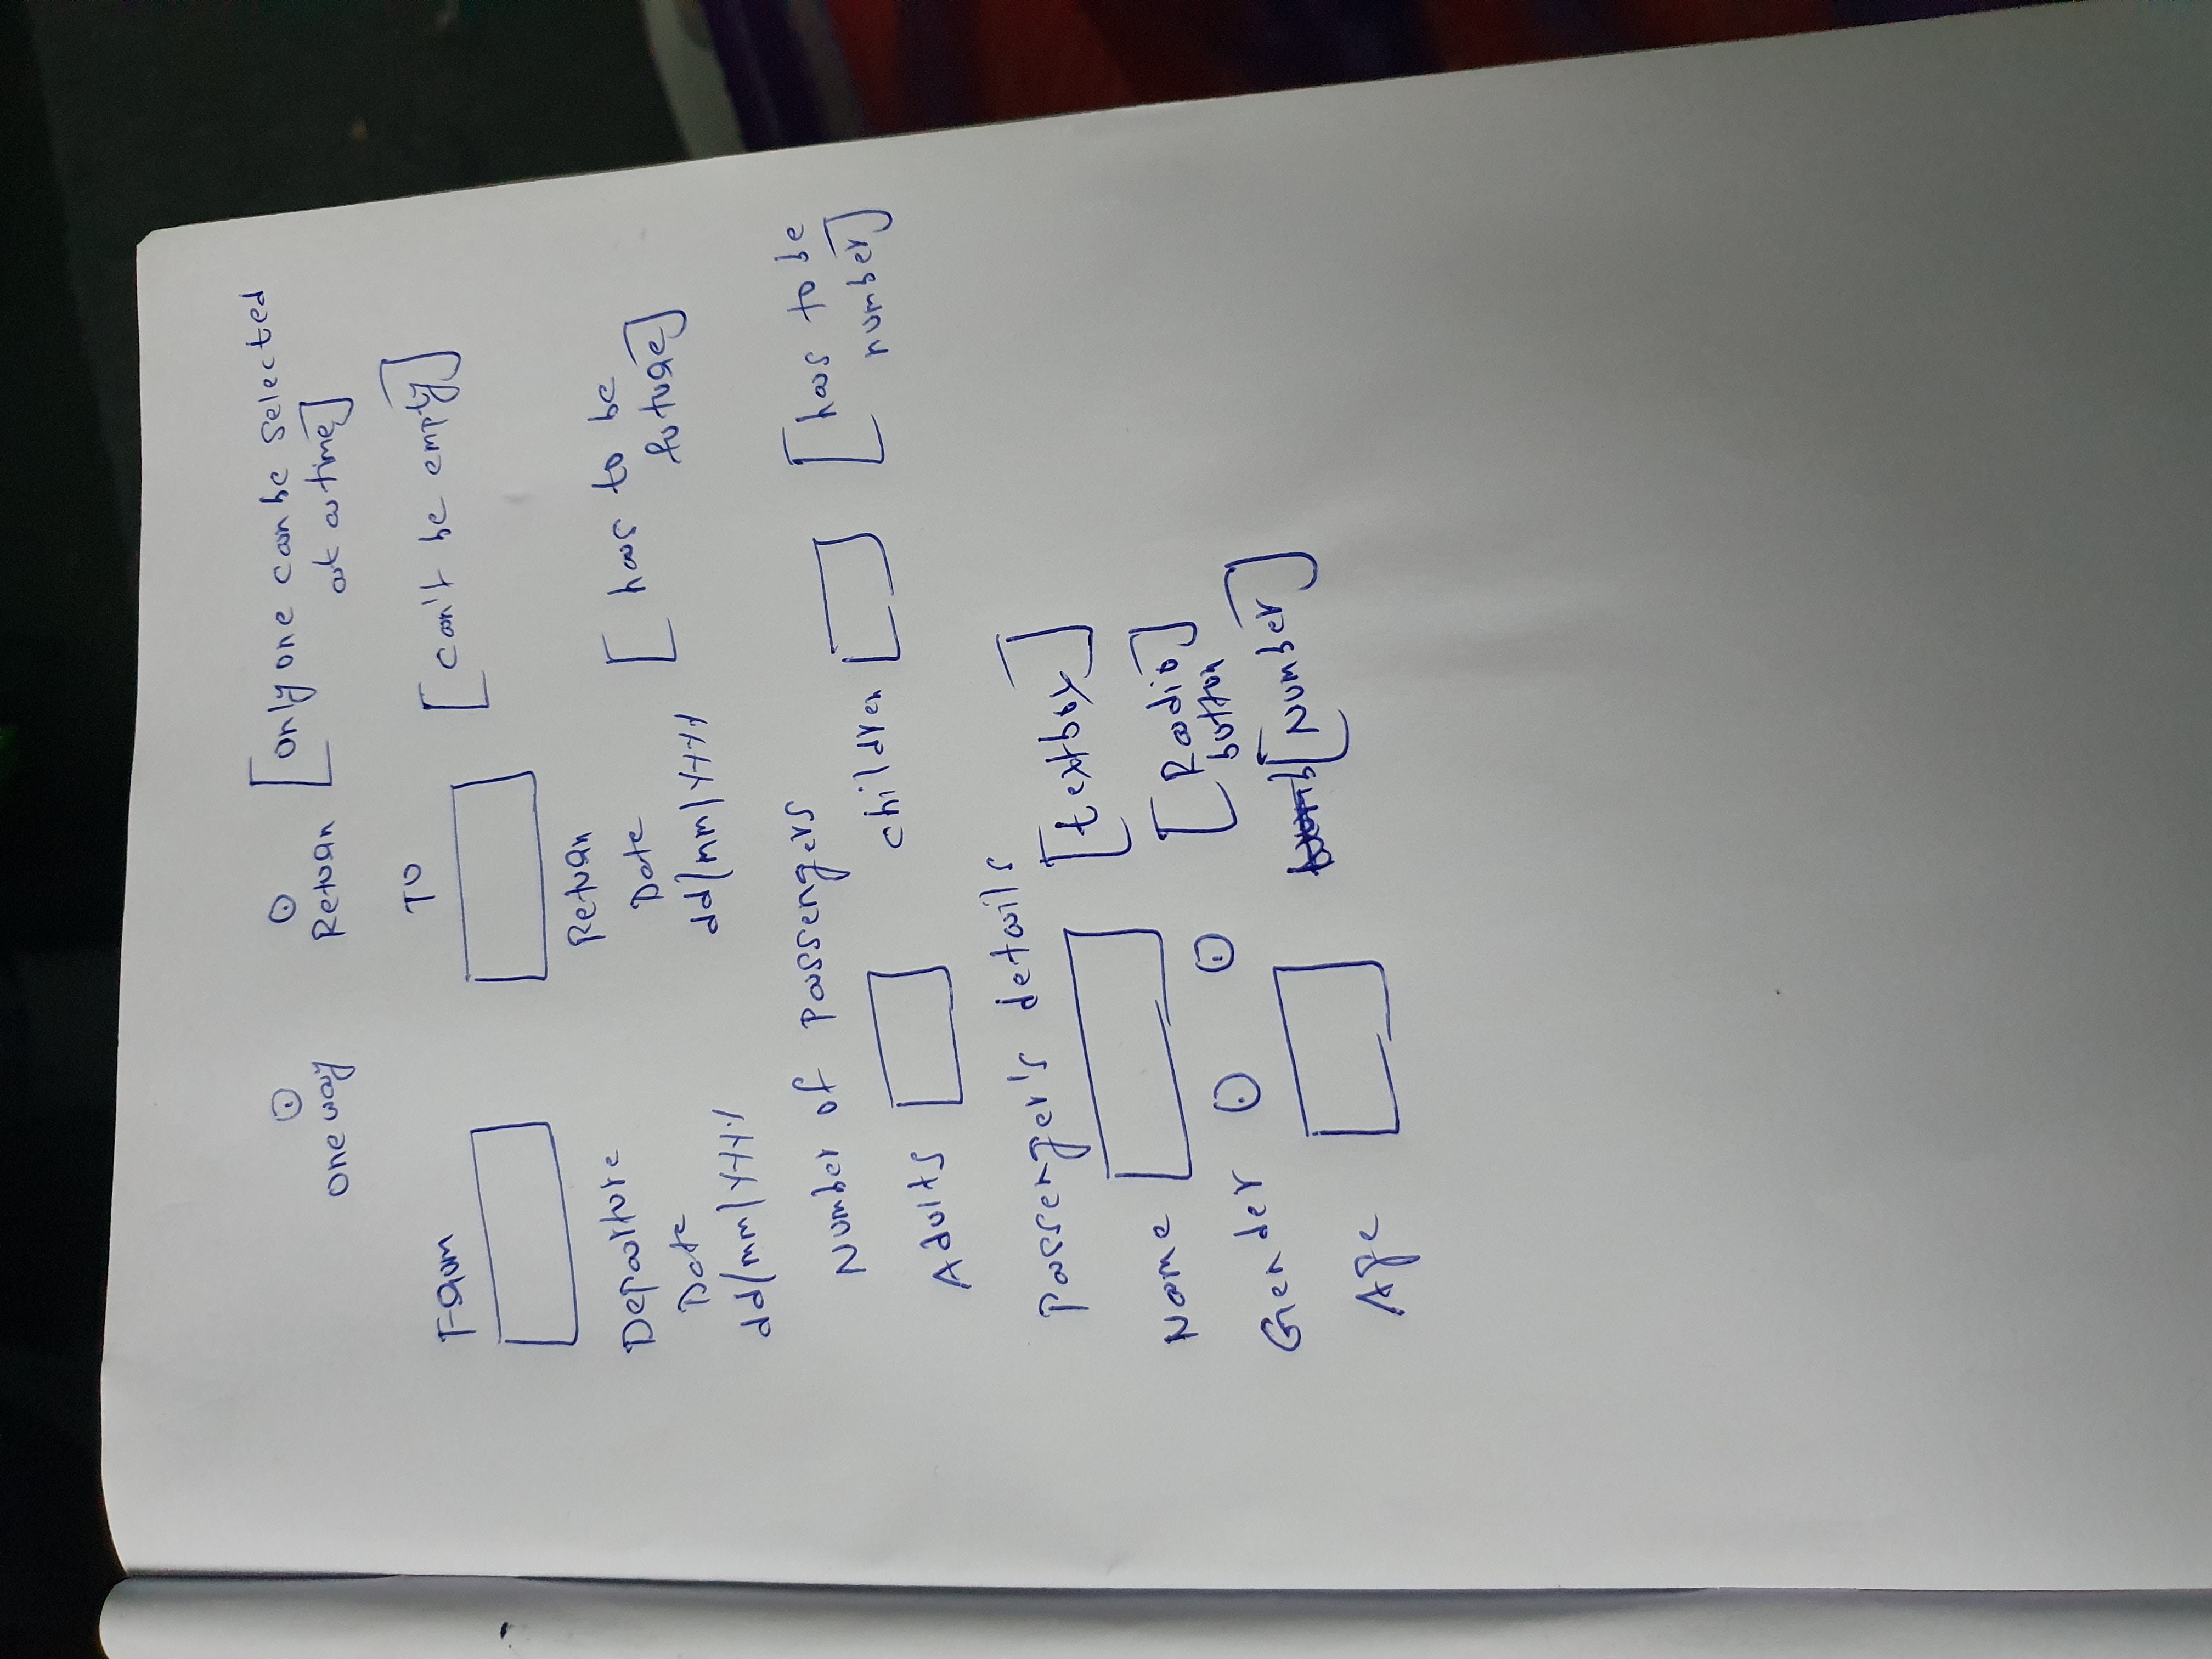 One way Return [only one can be selected
at a time]
From TO [can't be empty]
Departure Return [has to be
Date Date future]
dd/mm/yyyy dd/mm/yyyy
Number of Passengers
Adults children [has to be
number]
Passenger's details
Name [textbox]
Gender [Radio
button]
Age [Number]